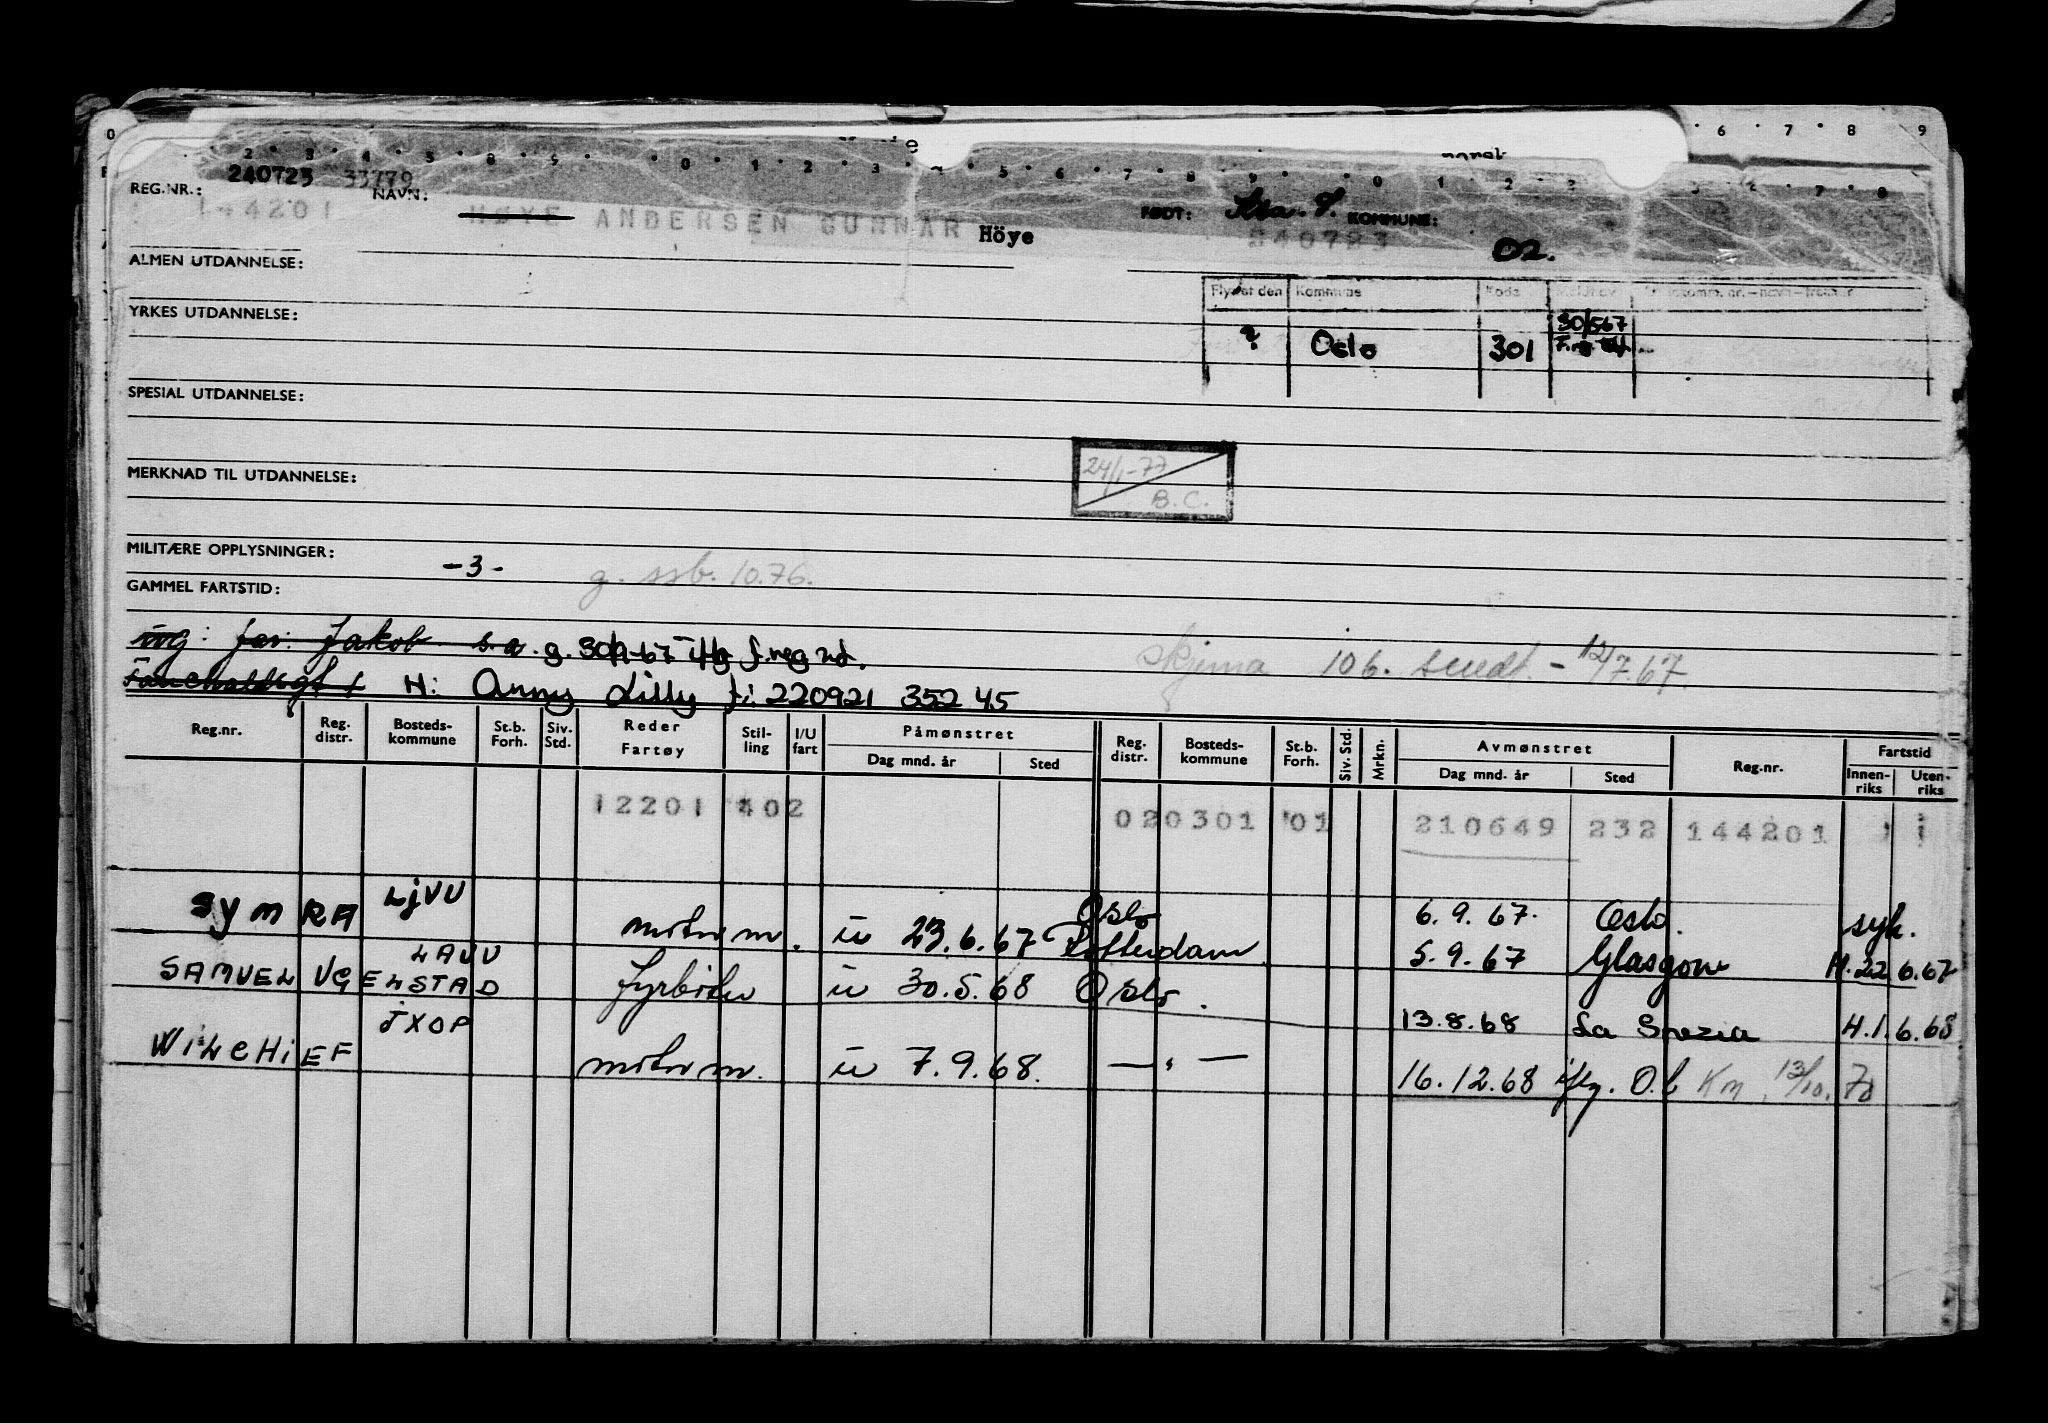 240723 33779
REG.NR.: 144201 NAVN: HØYE ANDERSEN GUNNAR Höye FØDT: 240723 KOMMUNE: 02.
ALMEN UTDANNELSE:
Flyttet den Kommune Kode
YRKES UTDANNELSE:
? Oslo 301 30/567
SPESIAL UTDANNELSE:
MERKNAD TIL UTDANNELSE:
24/1-77
B.C.
MILITÆRE OPPLYSNINGER:
-3- g. ssb. 10.76.
GAMMEL FARTSTID:
ug: far: Jakob s.a. g. 30/1-67 f.reg
Skjema 106. sendt - 12/7.67.
H: Anny Lilly f: 220921 352 45
Reg.nr. Reg. distr. Bosteds-kommune St.b. Forh. Siv. Std. Reder Fartøy Stil-ling I/U fart Påmønstret Dag mnd. år Sted Reg. distr. Bosteds-kommune St.b. Forh. Siv. Std. Mrkn. Avmønstret Dag mnd. år Sted Reg.nr. Fartstid Innen-riks Uten-riks
12201 402 020301 01 210649 232 144201 1 1
SYMRA LJVU motorm. u 23.6.67 Oslo Rotterdam 6.9.67. Oslo. syk.
5.9.67 Glasgow H.22.6.67
SAMUEL UGELSTAD LAVV fyrbøter u 30.5.68 Oslo.
13.8.68 La Spezia H.1.6.68
WILCHIEF JXOP motorm. u 7.9.68. — " —
16.12.68 iflg. O.b Km. 13/10.70